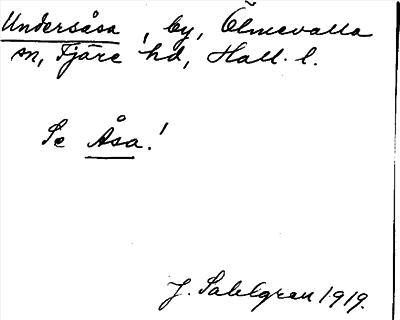 Undersåsa, by, Ölmevalla
sn, Fjäre hd, Hall. l.
Se Åsa!
J. Sahlgren 1919.